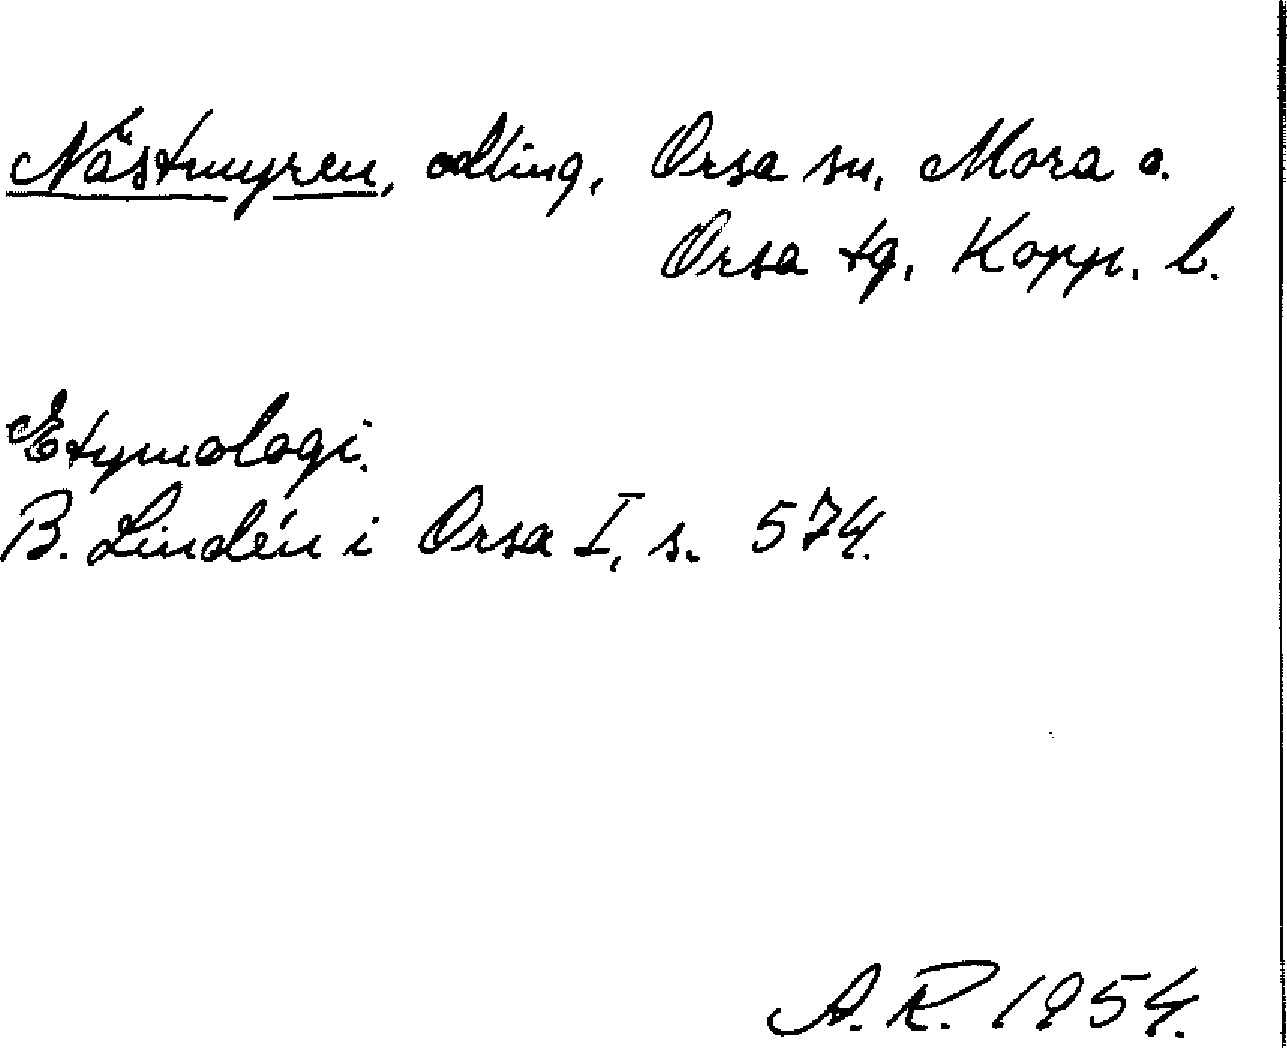 Nästmyren, odling, Orsa sn, Mora o.
Orsa tg, Kopp. l.
Etymologi.
B. Lindén i Orsa I, s. 574.
A.R. 1954.